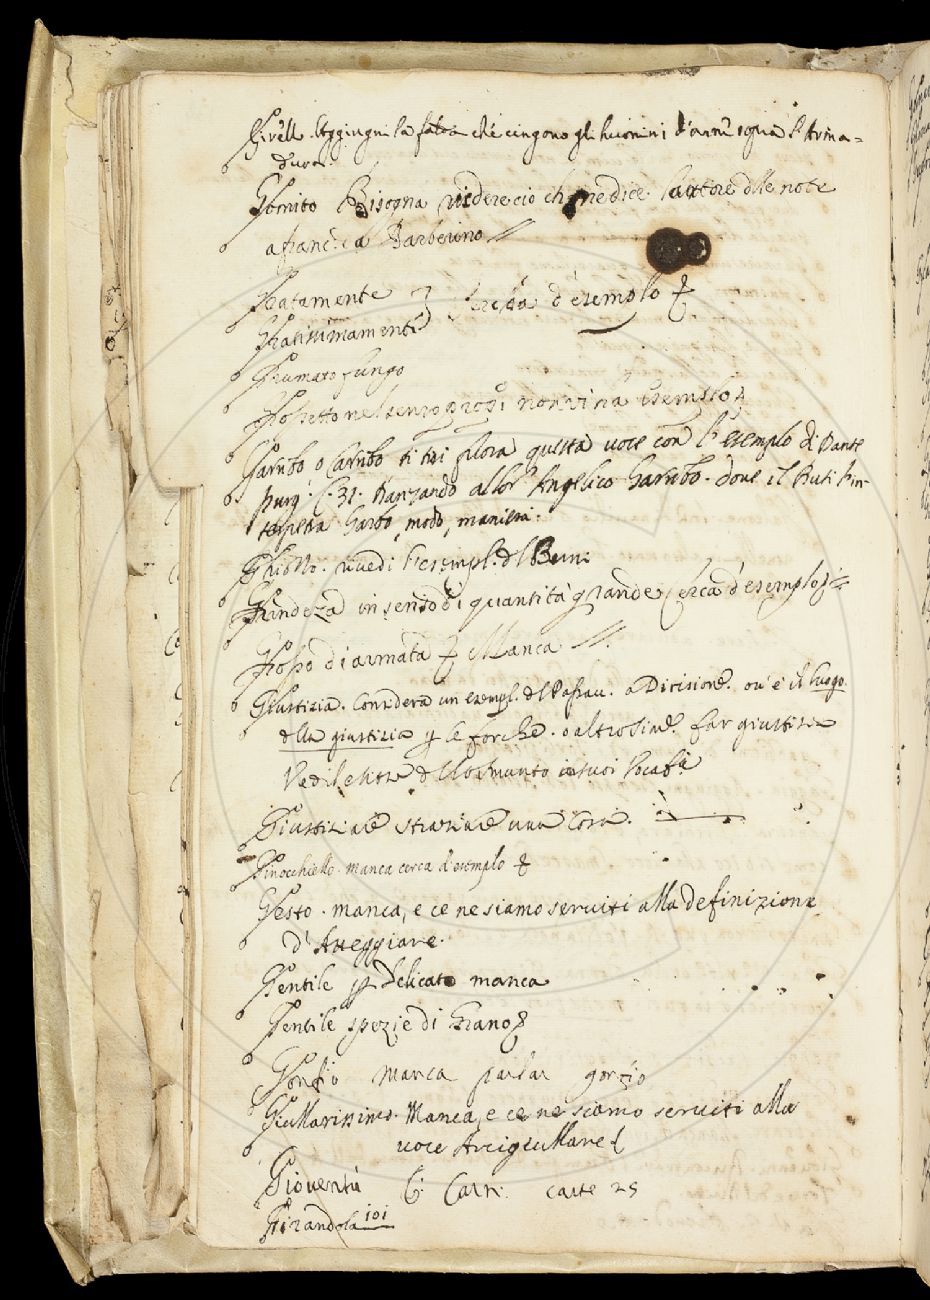 Aggiugni la falda che cingono gli huomini d'arme sopra l'Arma=
dura
Gomito Bisogna vedere ciò che ne dice l'autore delle note
a franc: da Barberino
Gratamente } Cerca d'esempio
Gratissimamente
Grumato fungo
Goletto nel senso non vi ha esemplo
Garubo o Carubo si tri fuora questa voce con l'esemplo di Dante
purg. C. 31. Danzando al lor Angelico Garubo. dove il Buti in-
terpetra Garbo, modo, maniera.
Ghiotto. vedi l'esempl. del Bern:
Grandeza in senso di quantità grande Cerca d'esemplo
Grosso d'armata Manca
Giustizia. Considera un esempl. del Passav. a Dicisione. ov'è il luogo
della giustizia p le forche. o altro sim. far giustizia
Vedi le lettere del Rosmunto in suoi vocab.
Giustiziare straziare una cosa.
Ginocchiello. manca cerca d'esemplo
Gesto. manca, e ce ne siamo serviti alla definizione
d'Atteggiare.
Gentile p delicato manca
Gentile spezie di Grano
Gonfio manca parlar gonfio
Giullarissimo. Manca, e ce ne siamo serviti alla
voce Arcigiullare
Gioventù G. Carn. carte 25
Girandola 101